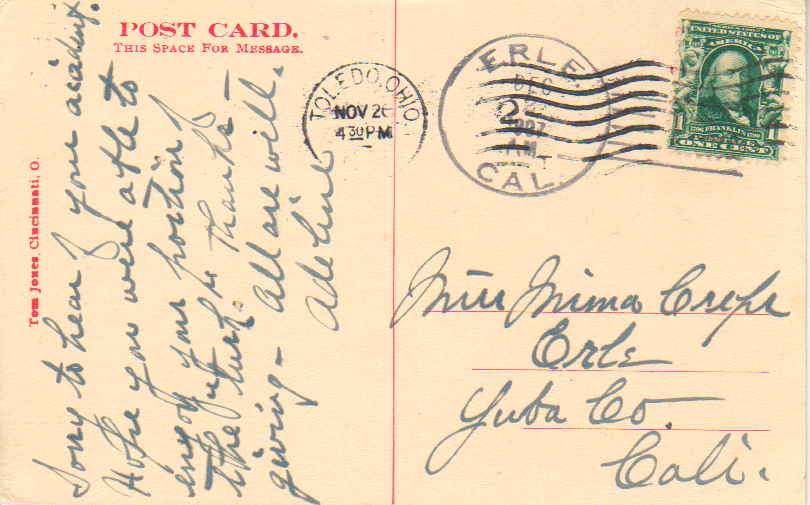 POST CARD.
THIS SPACE FOR MESSAGE.
Sorry to hear of your accident.
Hope you were able to
enjoy your portion of
the turkey Thanks-
giving - All are well.
Adeline
Tom Jones, Cincinnati, O.
TOLEDO, OHIO.
NOV 26
4 30 PM
ERLE
DEC
2
1907
AM
CAL.
UNITED STATES OF
AMERICA
1706 FRANKLIN 1790
POSTAGE
1 ONE CENT 1
Miss Mima Creps
Erle
Yuba Co.
Cali.